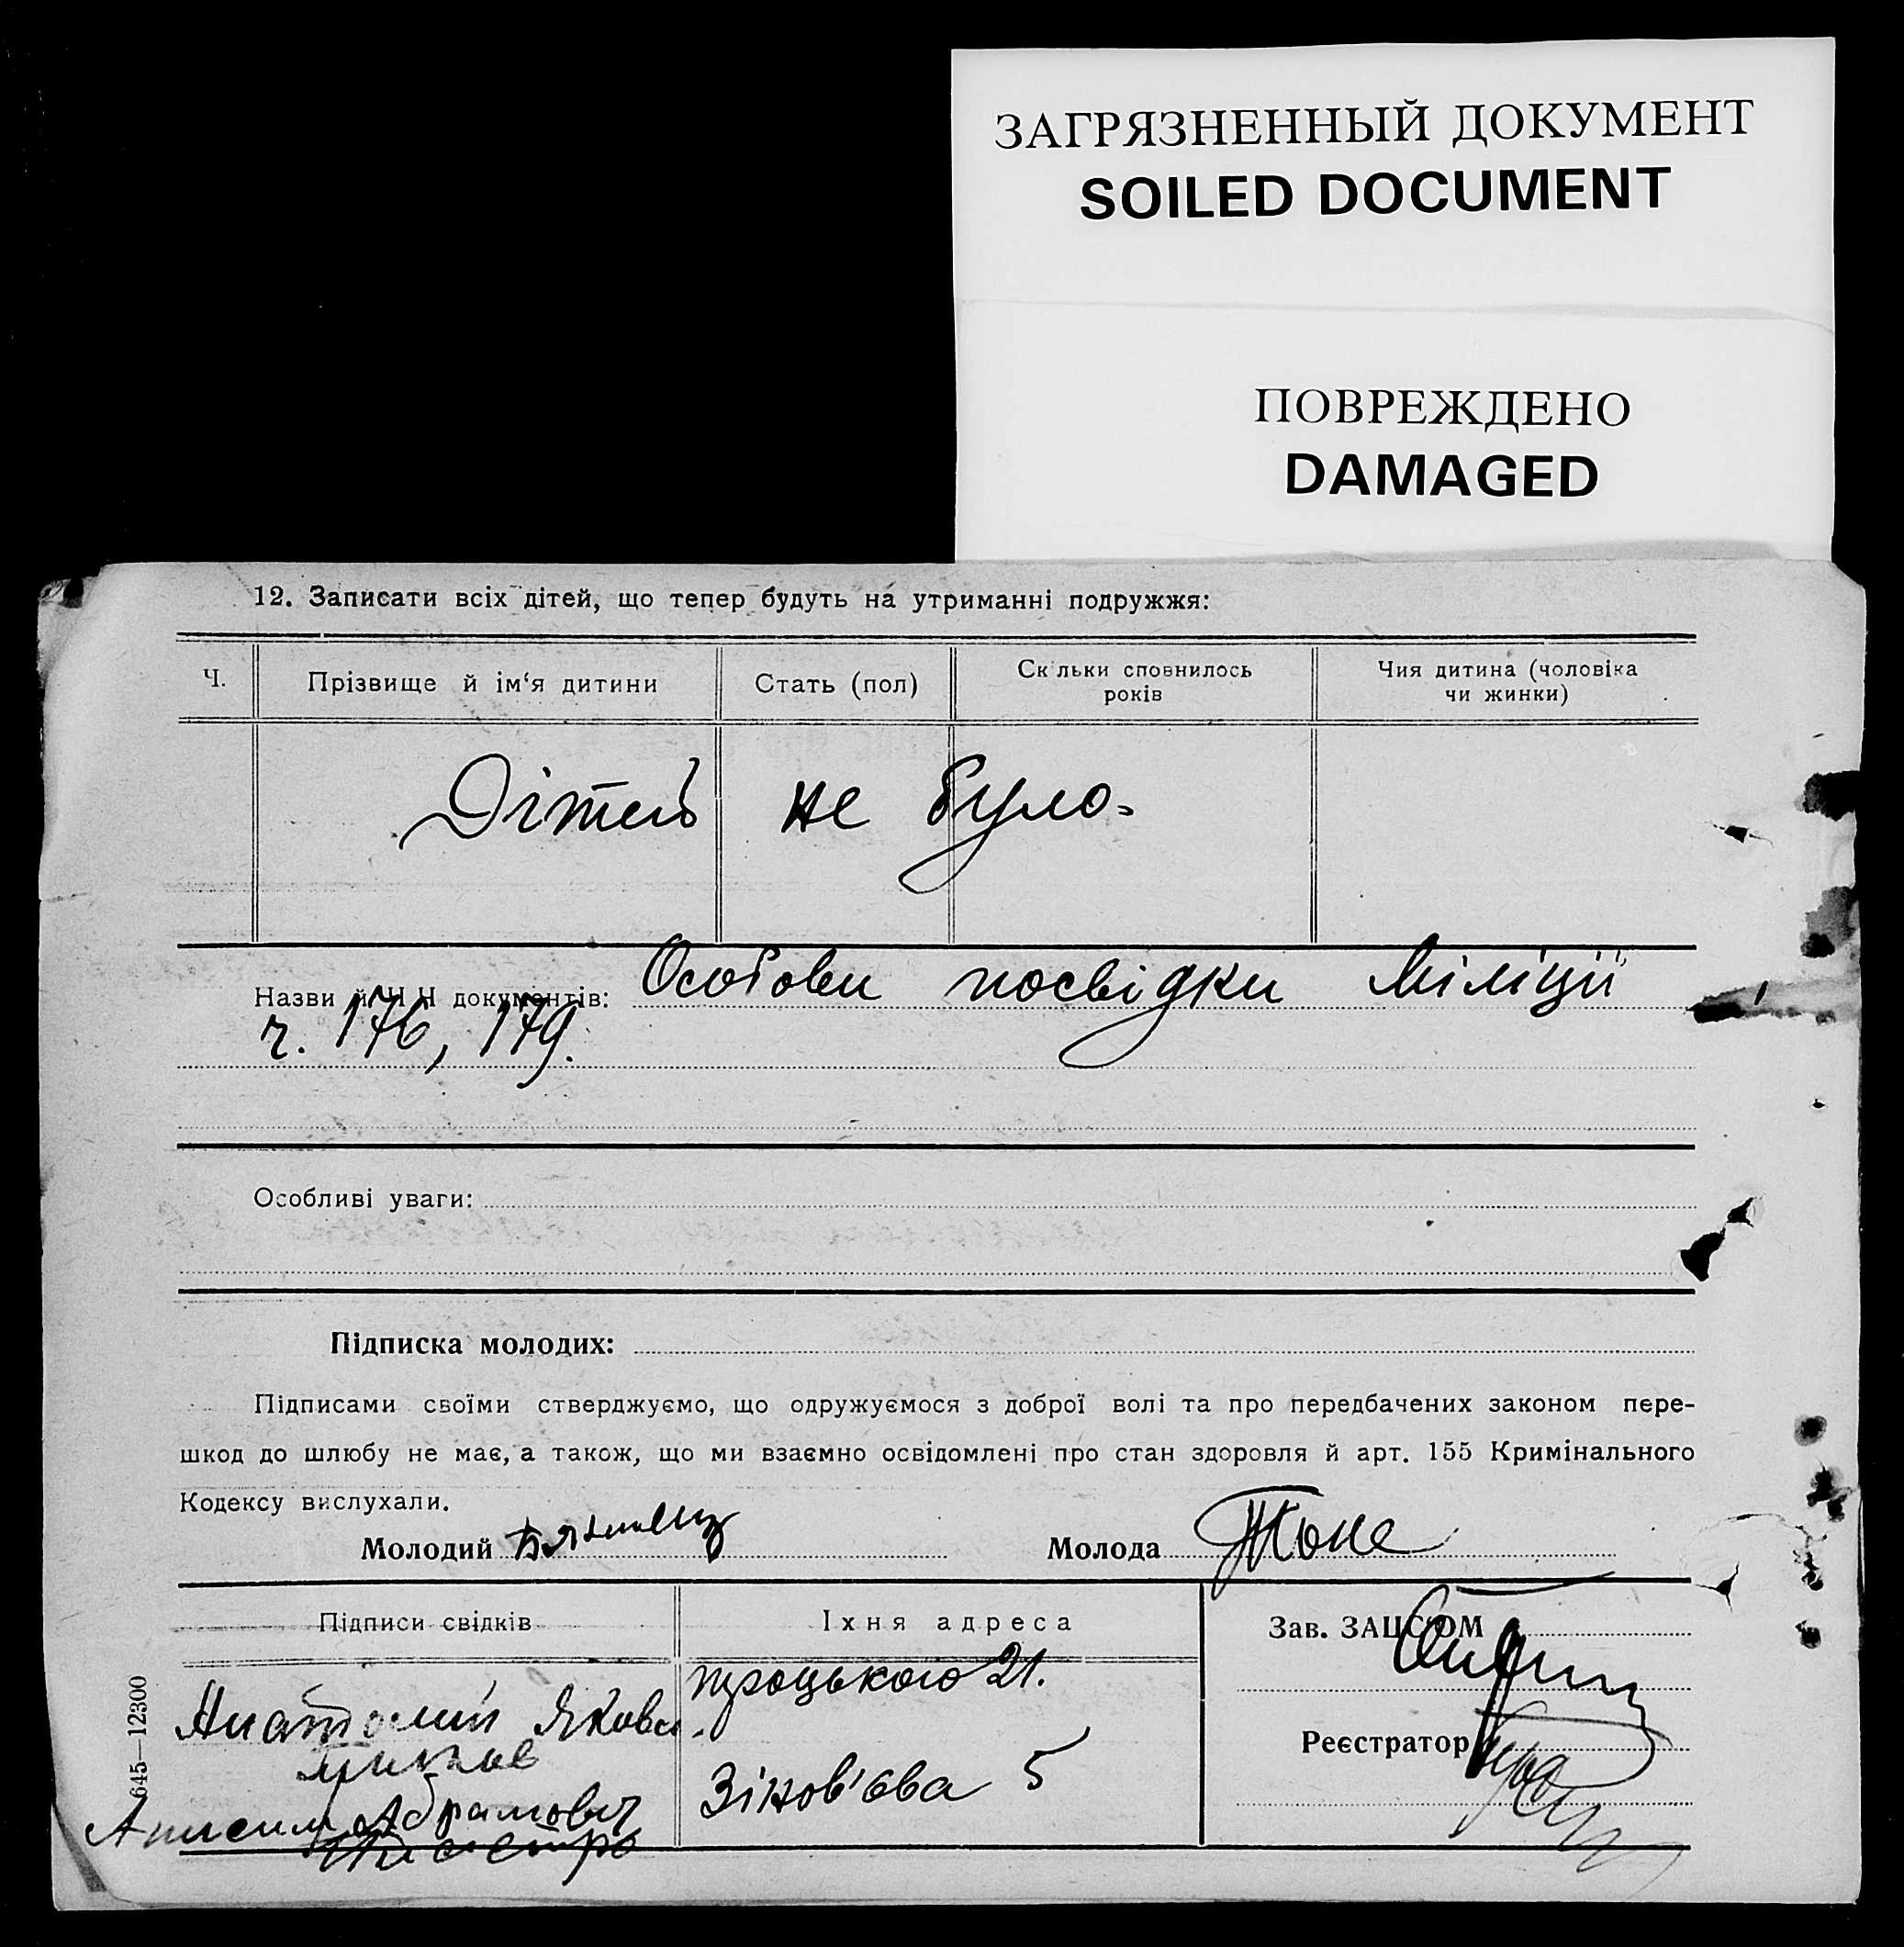 ЗАГРЯЗНЕННЫЙ ДОКУМЕНТ
SOILED DOCUMENT
ПОВРЕЖДЕНО
DAMAGED
12. Записати всіх дітей, що тепер будуть на утриманні подружжя:
Ч. Прізвище й ім‘я дитини Стать (пол) Скільки сповнилось років Чия дитина (чоловіка чи жинки)
Дітей не було
Назви й Ч Ч документів: Особови посвідки Міліції
ч. 176, 179.
Особливі уваги:
Підписка молодих:
Підписами своїми стверджуємо, що одружуємося з доброї волі та про передбачених законом пере-
шкод до шлюбу не має, а також, що ми взаємно освідомлені про стан здоровля й арт. 155 Кримінального
Кодексу вислухали.
Молодий Молода
Підписи свідків Їхня адреса Зав. ЗАЦСОМ
Троцького 21.
Анатолий Реєстратор
Зінов'єва 5
Абрамович
645—12300